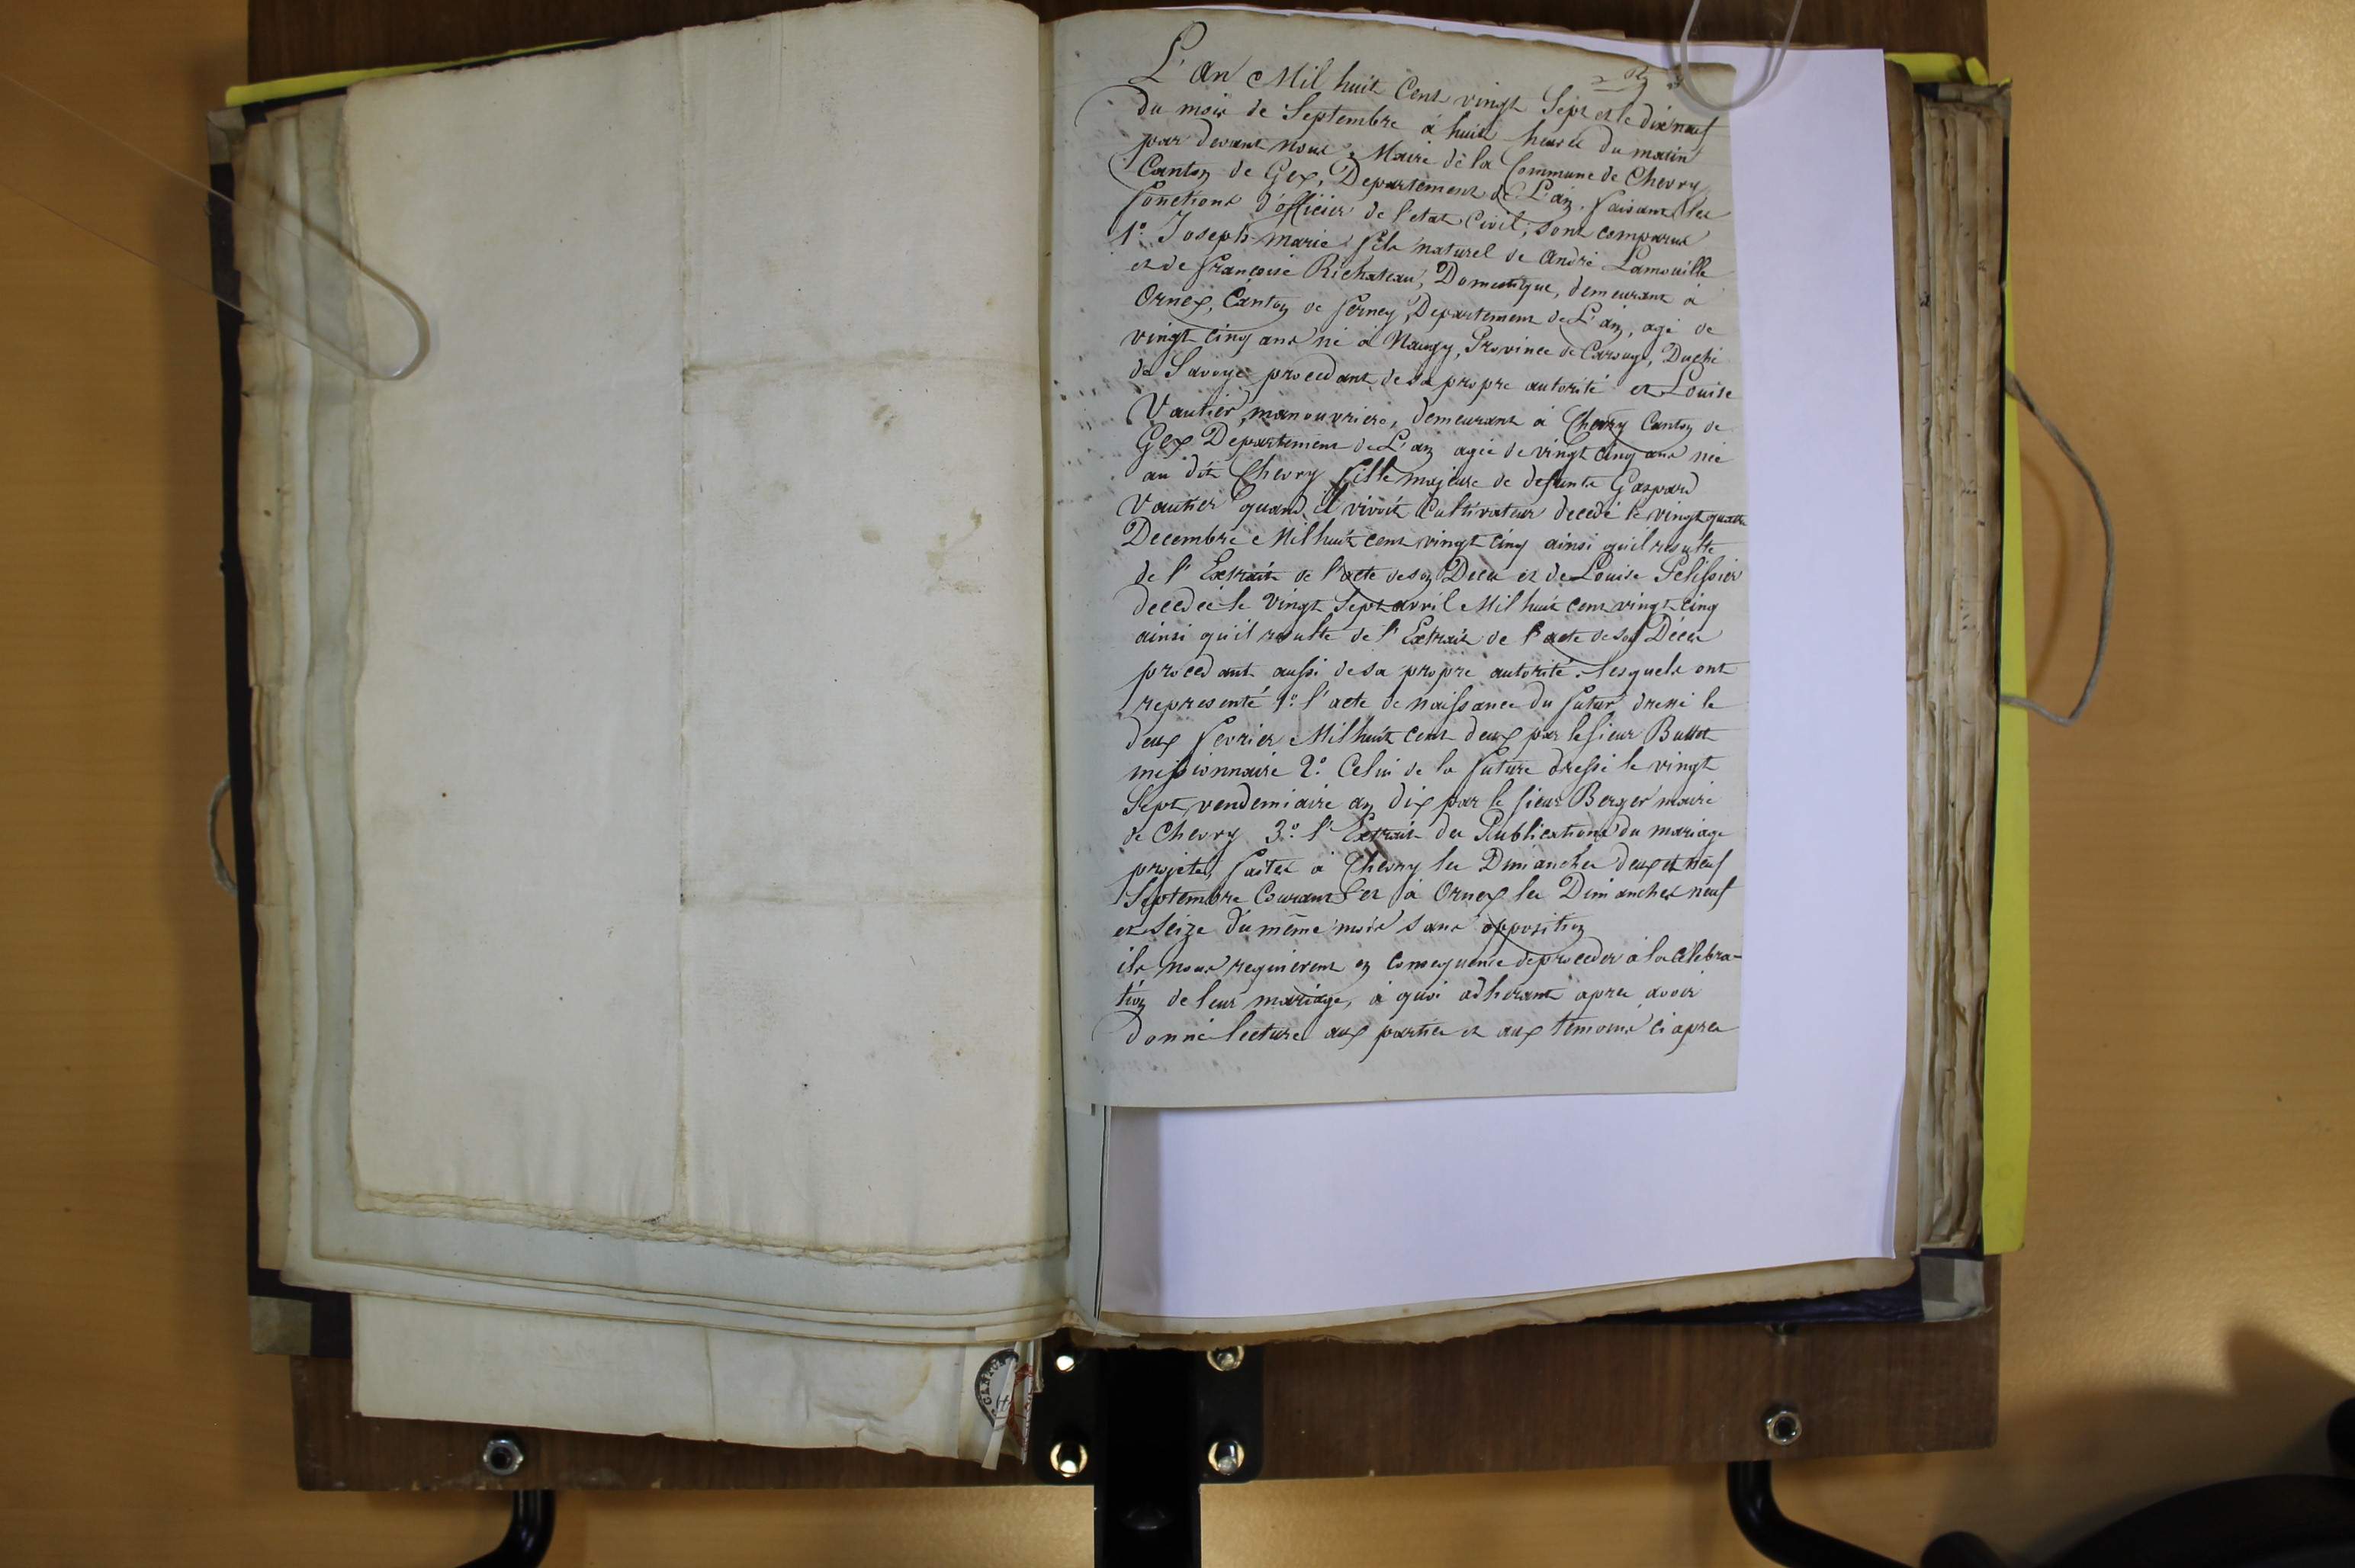 L'an Mil huit Cent vingt Sept et le dix neuf
du mois de Septembre à huit heures du matin
par devant nous Maire de la Commune de Chevry
Canton de Gex, Departement de L'ain, faisant les
fonctions d'officier de l'etat Civil, sont comparus
1.° Joseph-marie fils naturel de André Lamouille
et de françoise Richateau, Domestique, demeurant à
Ornex, Canton de ferney, Departement de L'ain, agé de
vingt cinq ans né à Nangy, Province de Carouge, Duché
de Savoye procedant de sa propre autorité et Louise
Vautier, manouvriere, demeurant à Chevry Canton de
Gex Departement de L'ain agée de vingt cinq ans née
au dit Chevry fille majeure de defunts Gaspard
Vautier quand il vivoit Cultivateur decedé le vingt quatre
Decembre Mil huit cent vingt cinq ainsi qu'il resulte
de l'Extrait de l'acte de son Décès et de Louise Pelissier
decedée le vingt Sept avril Mil huit cent vingt cinq
ainsi qu'il resulte de l'Extrait de l'acte de son Décès
procedant aussi de sa propre autorité. lesquels ont
representé 1.° l'acte de naissance du futur dressé le
deux fevrier Mil huit cent deux par le sieur
missionnaire 2.° Celui de la future dressé le vingt
Sept vendemiaire an dix par le sieur Berger maire
de Chevry 3.° l'Extrait des Publications du mariage
projeté, faites à Chevry les Dimanches deux et neuf
Septembre Courant et à Ornex les Dimanches neuf
et seize du même mois sans opposition
ils nous requierent en consequence de proceder à la célebra-
tion de leur mariage, à quoi adherant apres avoir
donné lecture aux parties et aux temoins ci apres